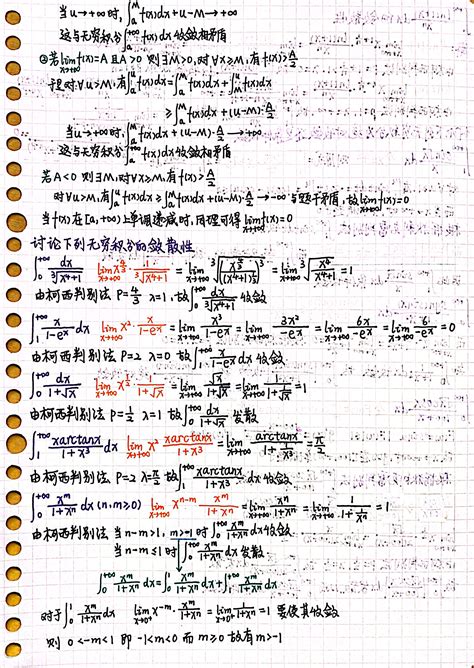 当u→+∞时, ∫_a^M f(x)dx+u-M→+∞
这与无穷积分∫_a^{+∞} f(x)dx 收敛相矛盾
②若lim_{x→+∞} f(x)=A 且A>0 则∃M>0, 对∀x≥M, 有f(x)>A/2
对∀u>M, 有∫_a^u f(x)dx=∫_a^M f(x)dx+∫_M^u f(x)dx
≥∫_a^M f(x)dx+(u-M)·A/2
当u→+∞时, ∫_a^M f(x)dx+(u-M)·A/2→+∞
这与无穷积分∫_a^{+∞} f(x)dx收敛相矛盾
若A<0 则∃M, 对∀x≥M, 有f(x)>A/2
对∀u>M, 有∫_a^u f(x)dx≥∫_a^M f(x)dx+(u-M)·A/2→-∞ 与题干矛盾, 故lim_{x→+∞} f(x)=0
当f(x)在[a,+∞)上单调递减时, 同理可得lim_{x→+∞} f(x)=0
讨论下列无穷积分的敛散性
∫_0^{+∞} dx/∛(x⁴+1) lim_{x→+∞} x^{4/3}·1/∛(x⁴+1) = lim_{x→+∞} = lim_{x→+∞} ∛(x⁴/(x⁴+1)) =1
由柯西判别法 P=4/3 λ=1, 故∫_0^{+∞} dx/∛(x⁴+1) 收敛
∫_1^{+∞} x/(1-e^x) dx lim_{x→+∞} x²·x/(1-e^x) = lim_{x→+∞} x³/(1-e^x) = lim_{x→+∞} 3x²/(-e^x) = lim_{x→+∞} 6x/(-e^x) = lim_{x→+∞} 6/(-e^x) =0
由柯西判别法 P=2 λ=0 故∫_1^{+∞} x/(1-e^x) dx 收敛
∫_0^{+∞} dx/(1+√x) lim_{x→+∞} x^{1/2}·1/(1+√x) = lim_{x→+∞} √x/(1+√x) = lim_{x→+∞} 1/(1/√x+1) =1
由柯西判别法 P=1/2 λ=1 故∫_0^{+∞} dx/(1+√x) 发散
∫_1^{+∞} xarctanx/(1+x³) dx lim_{x→+∞} x² xarctanx/(1+x³) = lim_{x→+∞} arctanx/(1+1/x³) = π/2
由柯西判别法 P=2 λ=π/2 故∫_1^{+∞} xarctanx/(1+x³) dx 收敛
∫_0^{+∞} x^m/(1+x^n) dx (n,m≥0) lim_{x→+∞} x^{n-m} x^m/(1+x^n) = lim_{x→+∞} x^n/(1+x^n) = lim_{x→+∞} 1/(1+1/x^n) =1
由柯西判别法 当n-m>1, m>-1时∫_0^{+∞} x^m/(1+x^n) dx收敛
当n-m≤1时∫_0^{+∞} x^m/(1+x^n) dx发散
∫_0^{+∞} x^m/(1+x^n) dx=∫_0^1 x^m/(1+x^n) dx+∫_1^{+∞} x^m/(1+x^n) dx
对于∫_0^1 x^m/(1+x^n) dx lim_{x→0⁺} x^{-m}·x^m/(1+x^n) = lim_{x→0⁺} 1/(1+x^n) =1 要使其收敛
则 0<-m<1 即 -1<m<0 而 m≥0 故有m>-1